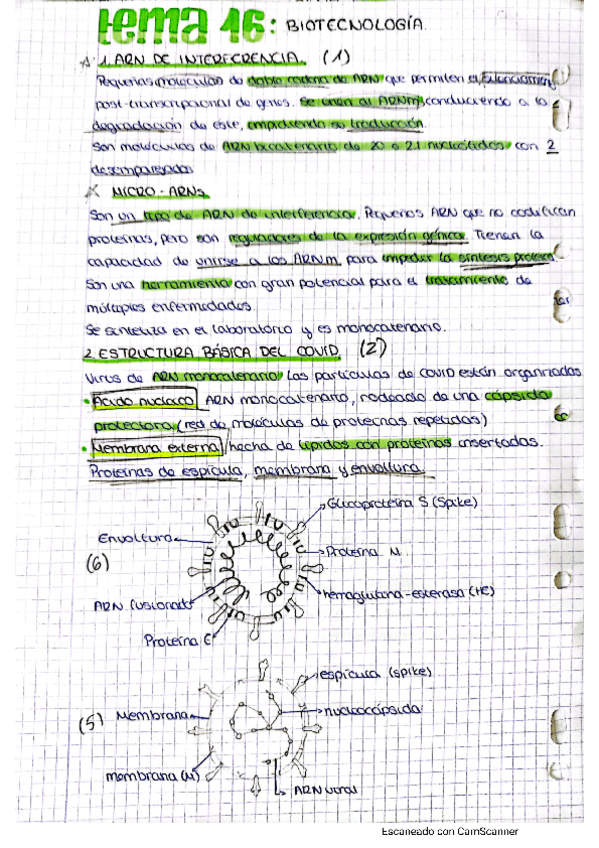 tema 16: BIOTECNOLOGÍA.
1. ARN DE INTERFERENCIA. (1)
Pequeñas moléculas de doble cadena de ARN que permiten el silenciamiento
post-transcripcional de genes. Se unen al ARNm, conduciendo a la
degradación de este, impidiendo su traducción.
Son moléculas de ARN bicatenario de 20 o 21 nucleótidos con 2
desemparejados
MICRO-ARNs
Son un tipo de ARN de interferencia. Pequeños ARN que no codifican
proteínas, pero son reguladores de la expresión génica. Tienen la
capacidad de unirse a los ARNm para impedir la síntesis proteica
Son una herramienta con gran potencial para el tratamiento de
múltiples enfermedades.
Se sintetiza en el laboratorio y es monocatenario.
2. ESTRUCTURA BÁSICA DEL COVID. (2)
Virus de ARN monocatenario. Las partículas de COVID están organizadas
• Ácido nucleico ARN monocatenario, rodeado de una cápsida
protectora (red de moléculas de proteínas repetidas)
• Membrana externa hecha de lípidos con proteínas insertadas.
Proteínas de espícula, membrana y envoltura.
Glucoproteína S (Spike)
Envoltura
(6)
Proteína M
ARN fusionado
hemaglutina-esterasa (HE)
Proteína E
espícula (spike)
(5) Membrana
nucleocápsida
membrana (M)
ARN viral
Escaneado con CamScanner